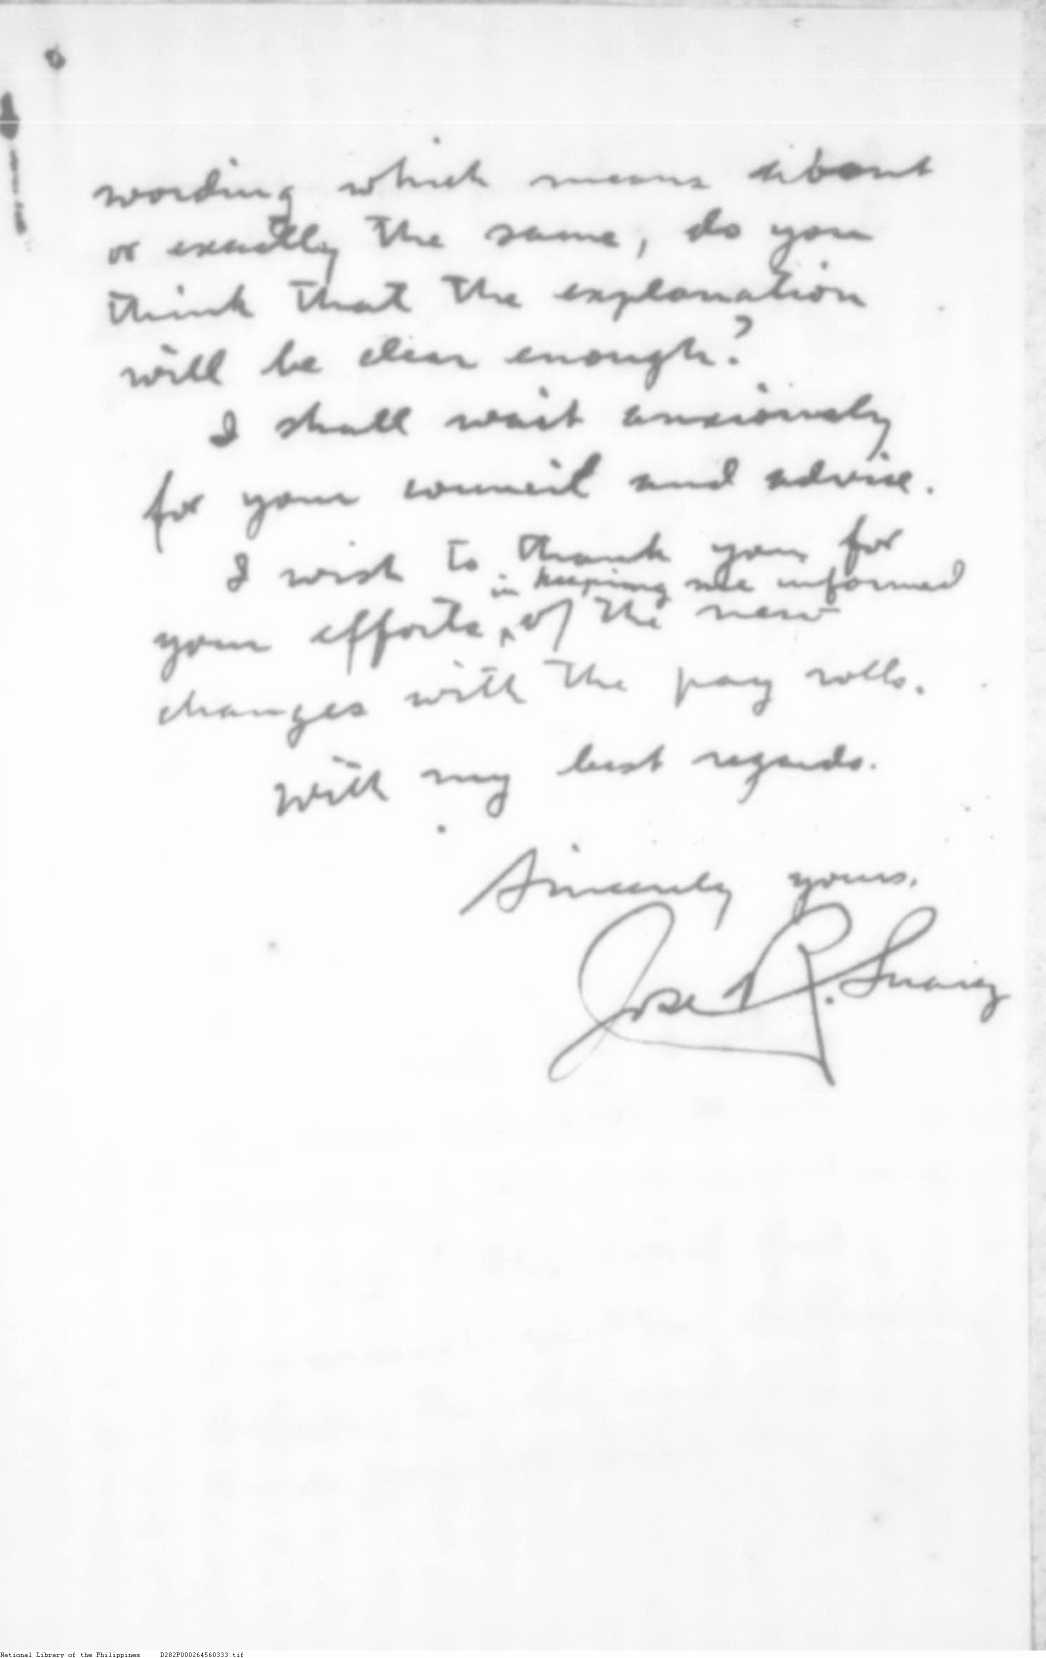 wording which means about
or exactly the same, do you
think that the explanation
will be clear enough?
I shall wait anxiously
for your council and advise.
I wish to thank you for
in keeping me informed
your efforts, of the new
changes with the pay rolls.
With my best regards.
Sincerely yours,
Jose R. Suarez
National Library of the Philippines D282P000264560333.tif